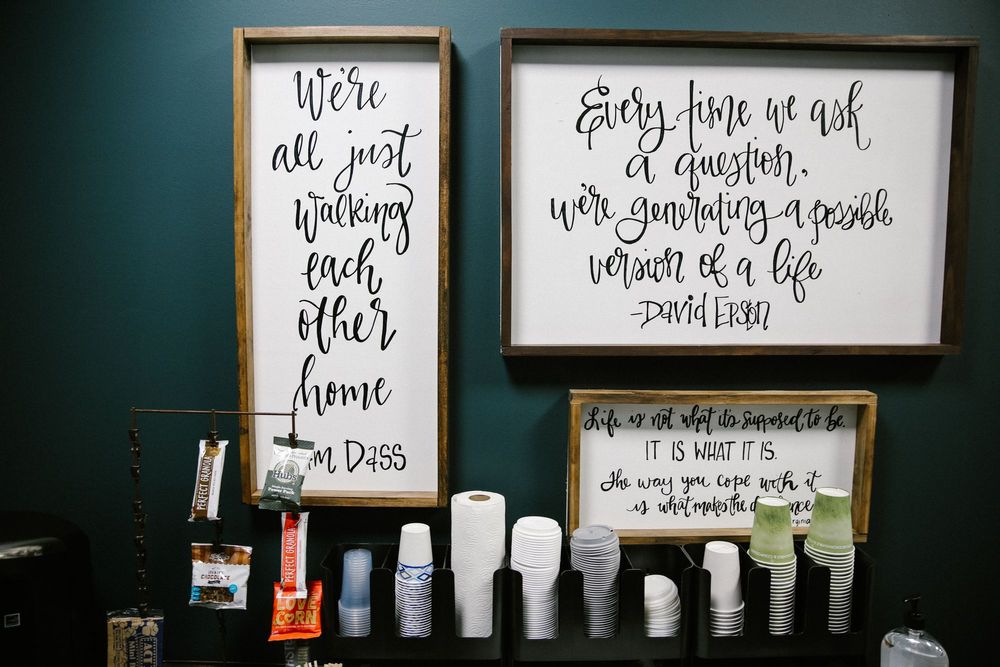 We're
all just
walking
each
other
home
Dass
Every time we ask
a question,
we're generating a possible
version of a life
-David Epson
Life is not what it's supposed to be.
IT IS WHAT IT IS.
The way you cope with it
is what makes the
PERFECT GRANOLA
Hubs
Power Pack
PERFECT GRANOLA
CHOCOLATE
LOVE
CORN